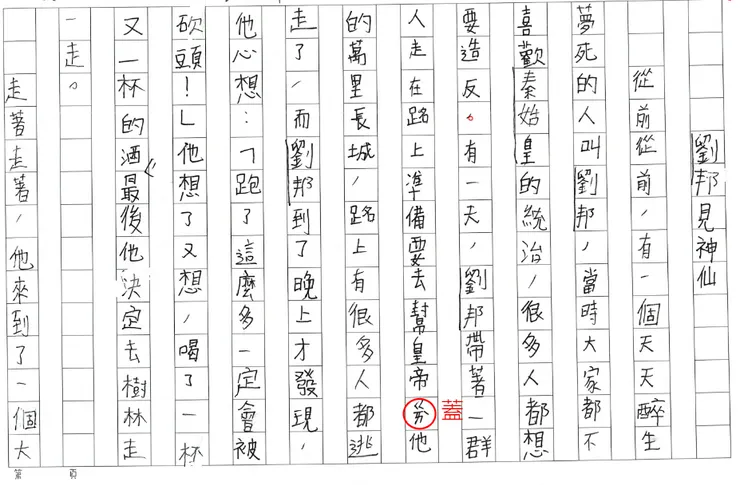 劉邦見神仙
從前從前，有一個天天醉生
夢死的人叫劉邦，當時大家都不
喜歡秦始皇的統治，很多人都想
要造反。有一天，劉邦帶著一群
人走在路上準備要去幫皇帝ㄍㄞ他
蓋
的萬里長城，路上有很多人都逃
走了，而劉邦到了晚上才發現，
他心想：「跑了這麼多一定會被
砍頭！」他想了又想，喝了一杯
又一杯的酒最後他決定去樹林走
一走。
走著走著，他來到了一個大
第 頁